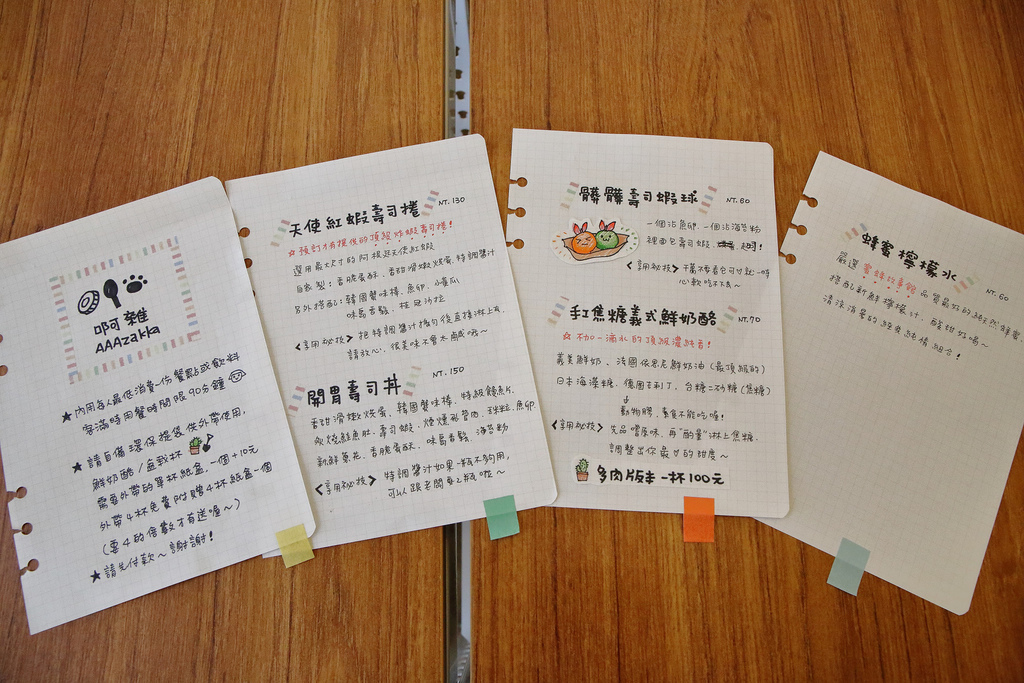 啊雜
AAAzakka
★內用每人最低消費一份餐點或飲料
客滿時用餐時間限90分鐘
★請自備環保提袋供外帶使用,
鮮奶酪/盆栽杯
需要外帶的單杯紙盒一個+10元
外帶4杯免費附贈4杯紙盒一個
(要4的倍數才有送喔~)
★請先付款~謝謝!
天使紅蝦壽司捲 NT.130
☆預訂才有提供的頂級炸蝦壽司捲!
選用最大尺寸的阿根廷天使紅蝦
自家製:香脆蛋酥、香甜滑嫩烘蛋、特調醬汁
另外搭配:韓國蟹味棒、魚卵、小黃瓜
味島香鬆、桂冠沙拉
<享用秘技> 把特調醬汁搖勻後直接淋上去,
請放心,很美味不會太鹹哦~
開胃壽司丼 NT.150
香甜滑嫩烘蛋、韓國蟹味棒、特級鰻魚片、
炙燒鮭魚肚、壽司蝦、煙燻花枝、玉米粒、魚卵、
新鮮、香脆蛋酥、味島香鬆、海苔粉
<享用秘技> 特調醬汁如果一瓶不夠用,
可以跟老闆要2瓶啦~
髒髒壽司蝦球 NT.60
一個沾魚卵、一個沾海苔粉
裡面包壽司蝦、超!
<享用秘技> 千萬不要看它可愛就一時
心軟吃不下去~
手工焦糖義式鮮奶酪 NT.70
☆不加一滴水的頂級濃純香!
義美鮮奶、法國依思尼鮮奶油(最頂級的)
日本海藻糖、德國吉利丁、台糖二砂糖(焦糖)
↓
動物膠,素食不能吃喔!
<享用秘技> 先品嚐原味,再"酌量"淋上焦糖,
調整出你最愛的甜度~
多肉版本 一杯100元
蜂蜜檸檬水 NT.60
嚴選蜜蜂故事館品質最好的純天然蜂蜜,
搭配新鮮檸檬汁,酸甜好喝~
清涼消暑的經典純情組合!